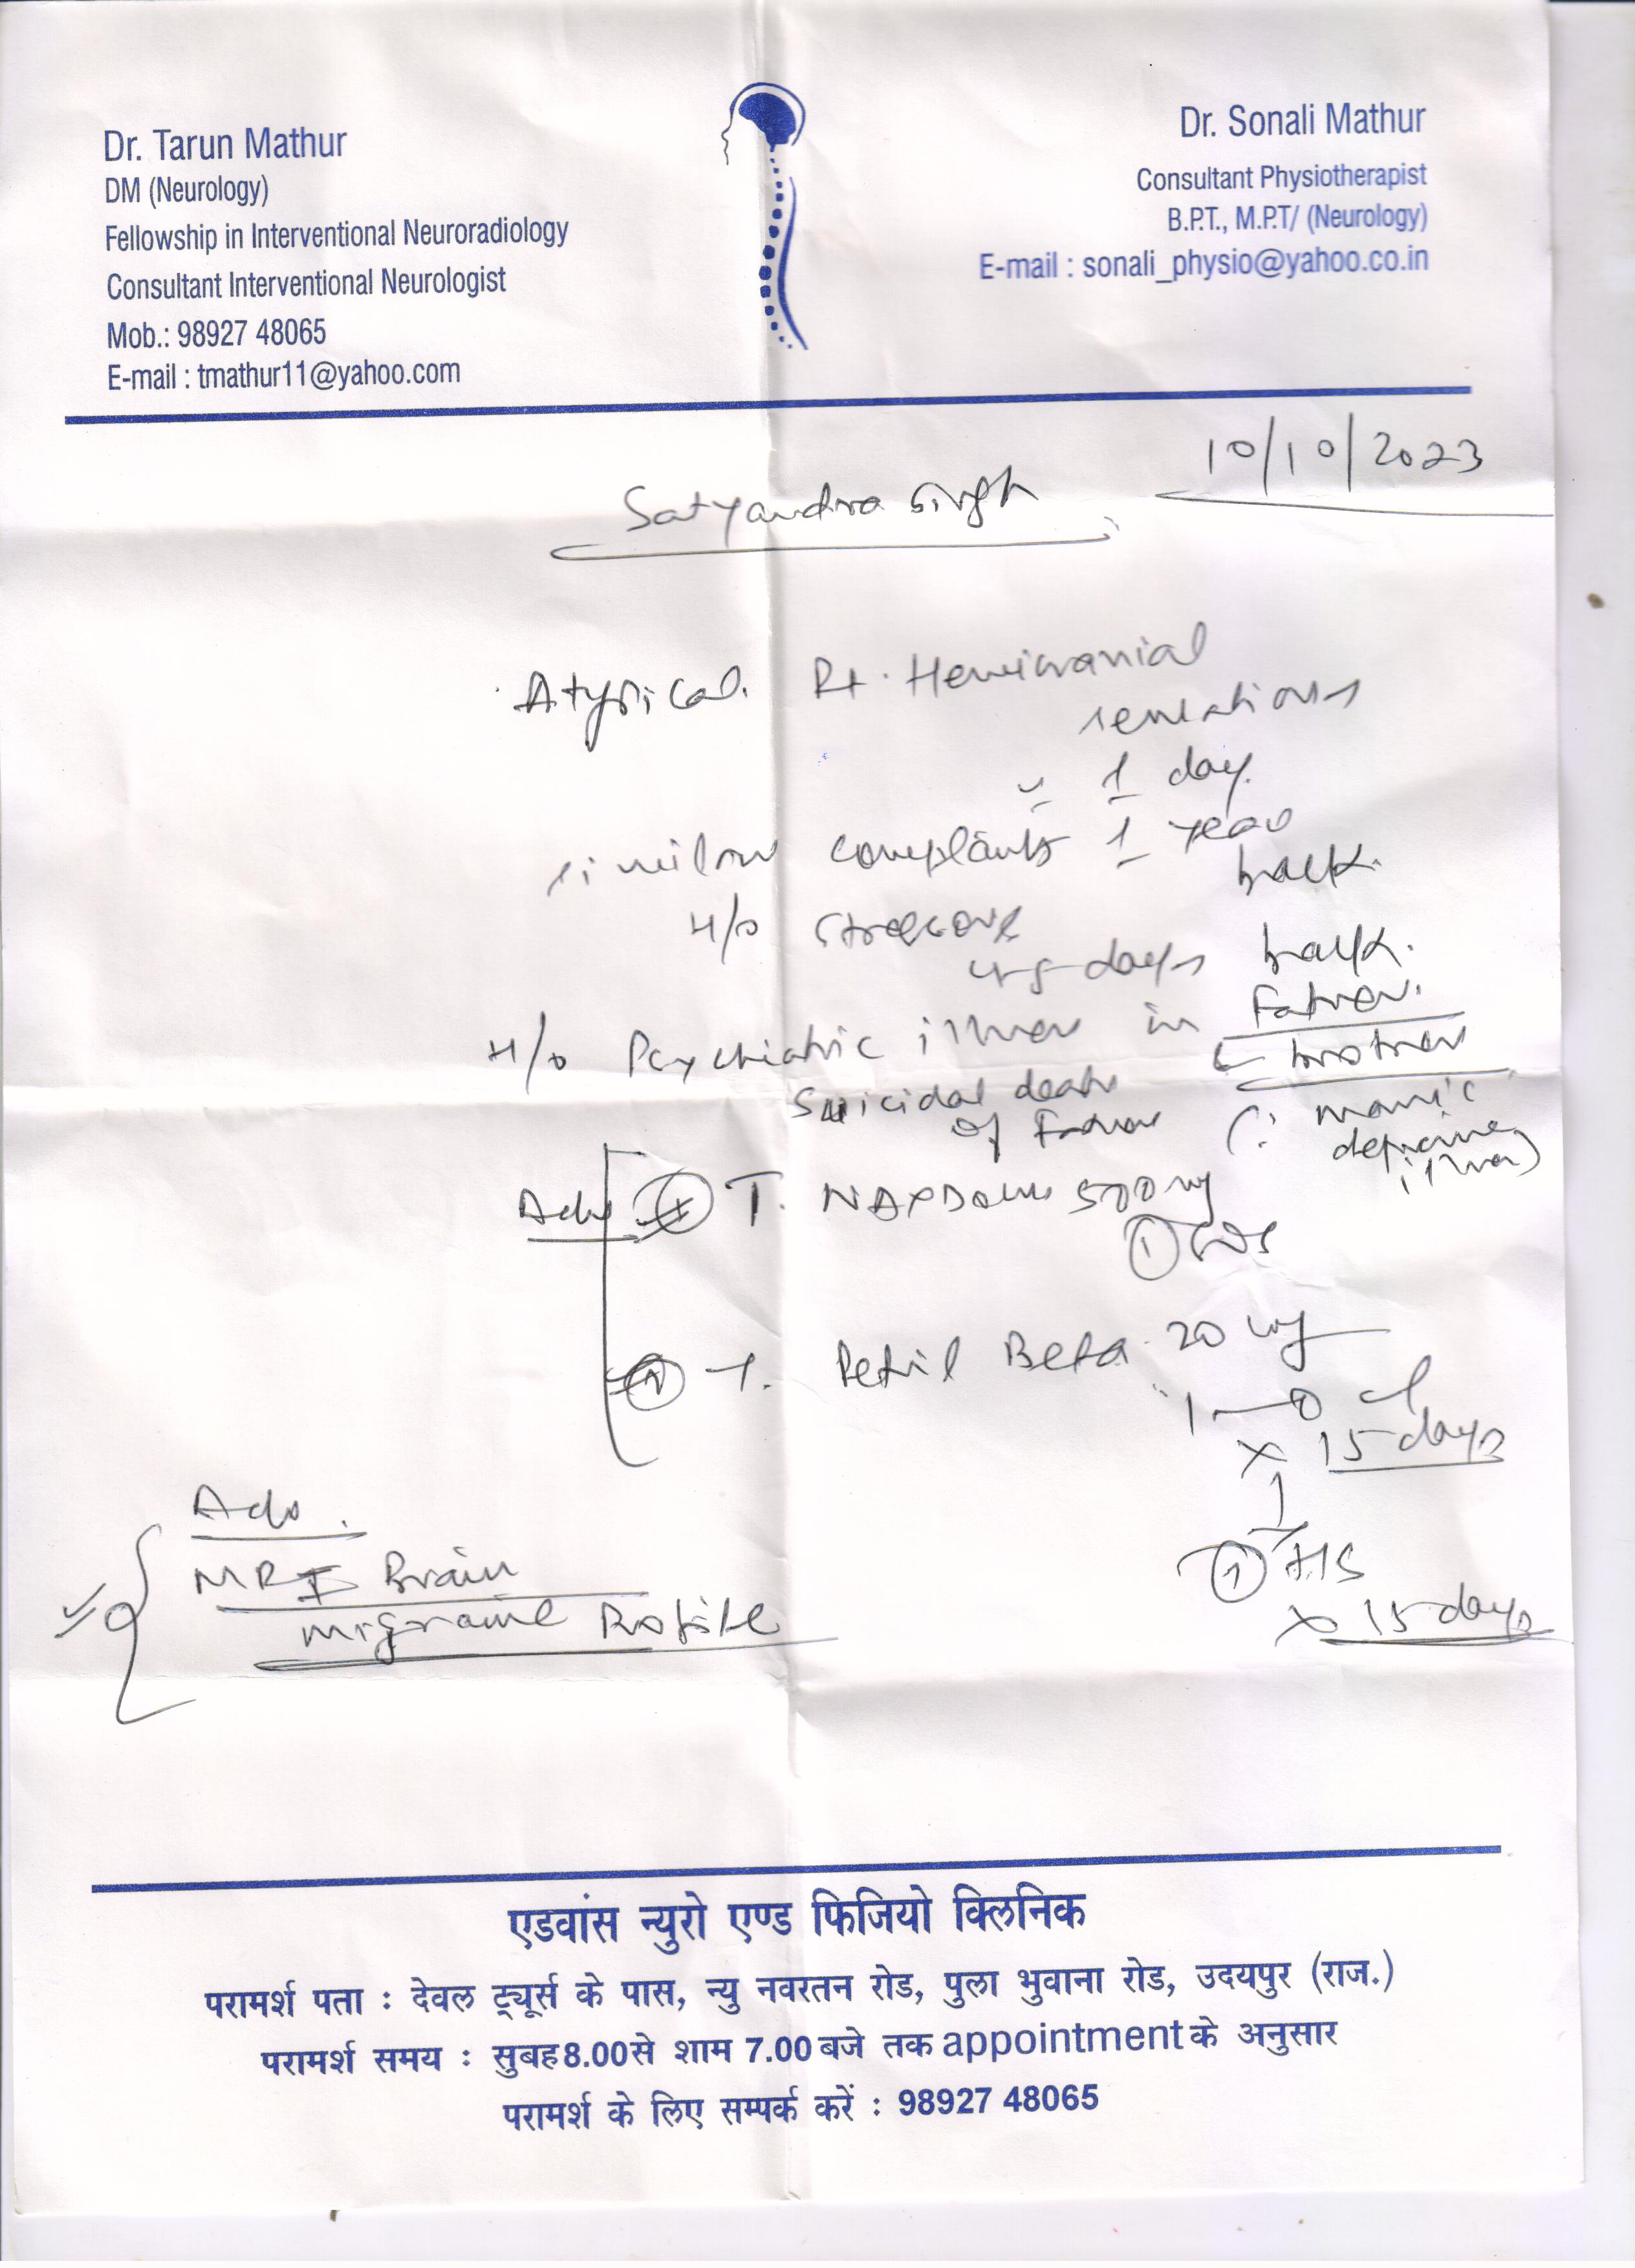 Dr. Tarun Mathur
DM (Neurology)
Fellowship in Interventional Neuroradiology
Consultant Interventional Neurologist
Mob.: 98927 48065
E-mail : tmathur11@yahoo.com
Dr. Sonali Mathur
Consultant Physiotherapist
B.P.T., M.P.T/ (Neurology)
E-mail : sonali_physio@yahoo.co.in
10/10/2023
Satyandra Singh
Atypical Rt. Hemicranial
sensations
1 day.
similar complaints 1 year
back.
H/o
days back.
H/o Psychiatric illness in Father.
brother
Suicidal death
of Father
(: manic
depressive
illness)
Adv T. 500 mg
① SOS
T. Petril Beta 20 mg
1—0
x 15 days
① HS
x 15 days
Adv.
MRI Brain
migraine Profile
एडवांस न्युरो एण्ड फिजियो क्लिनिक
परामर्श पता : देवल ट्यूर्स के पास, न्यु नवरतन रोड, पुला भुवाना रोड, उदयपुर (राज.)
परामर्श समय : सुबह 8.00 से शाम 7.00 बजे तक appointment के अनुसार
परामर्श के लिए सम्पर्क करें : 98927 48065